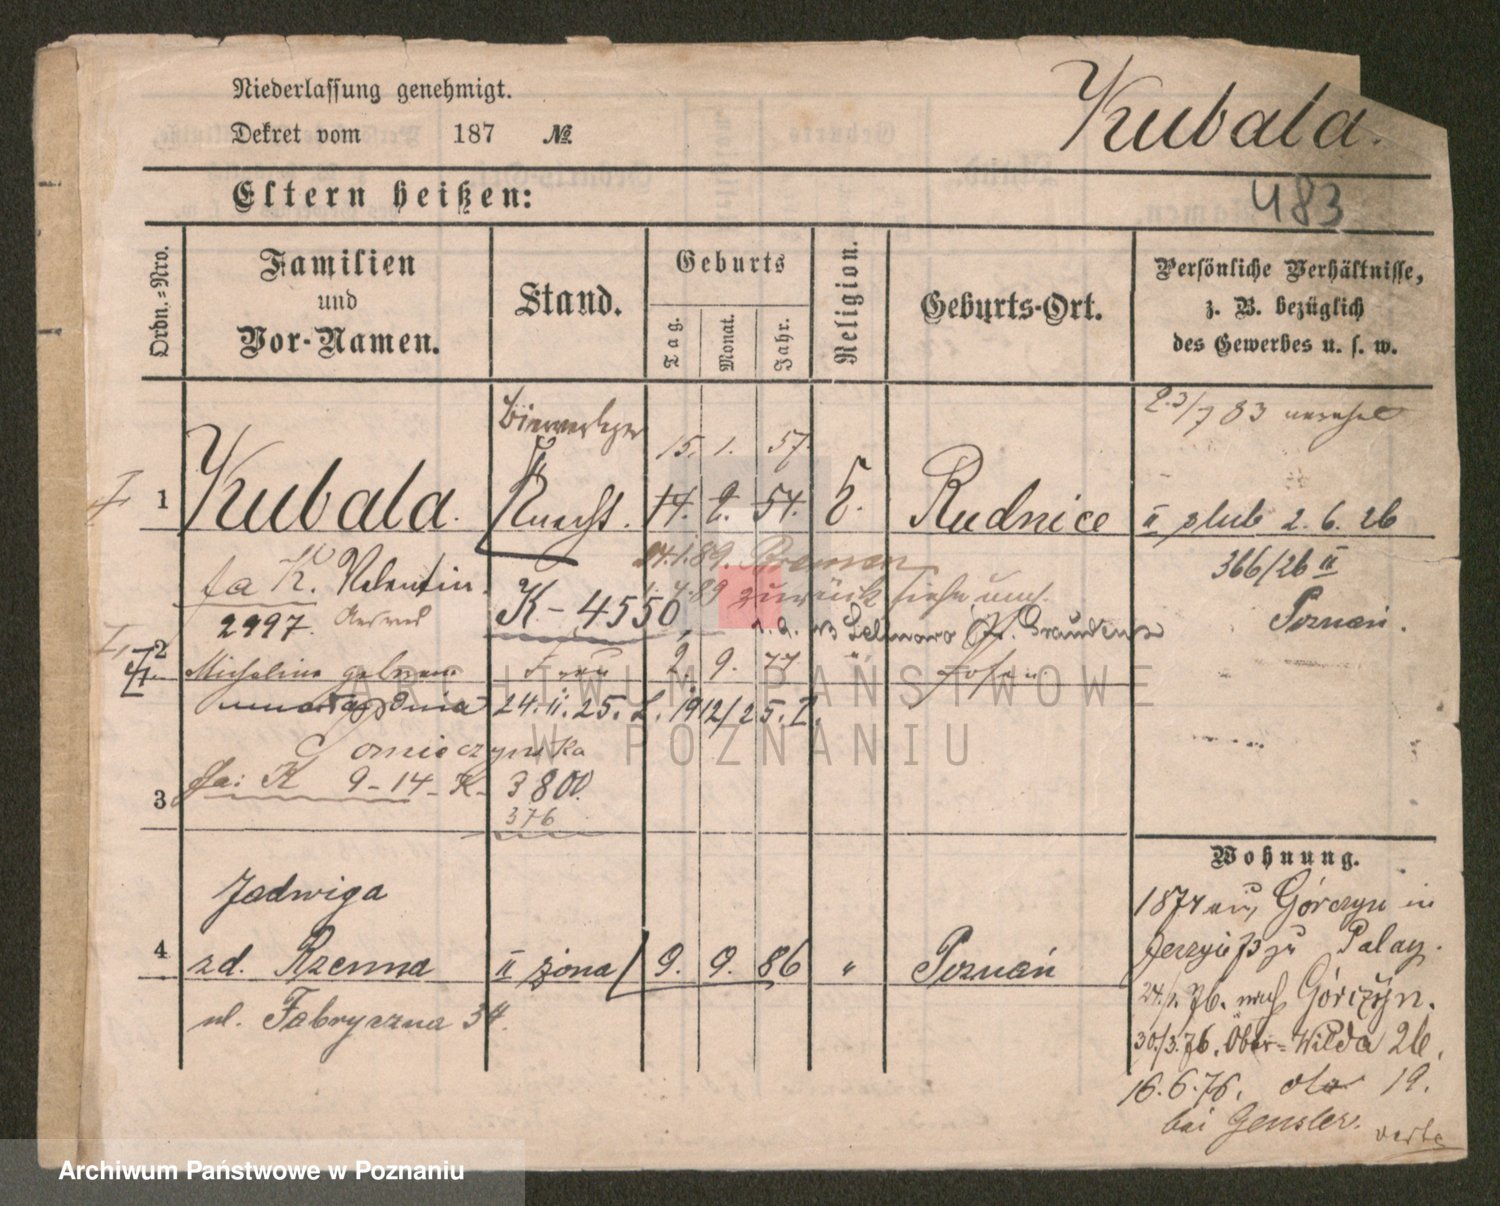 Niederlassung genehmigt.
Dekret vom 187 №
Kubala.
483
Eltern heißen:
Ordn.=Nro.
Familien
und
Vor-Namen.
Stand.
Geburts
Tag.
Monat.
Jahr.
Religion.
Geburts-Ort.
Persönliche Verhältnisse,
z. B. bezüglich
des Gewerbes u. s. w.
23/7 83
Bierverleger
15. 1. 57.
1 Kubala. Knecht. 14. 2. 54. Rudnice
II ślub 2.6.26
366/26 II
Poznań.
fa K. Valentin
2997.
K-4550
24.1.89. Bremen
zurück siehe
2 Michalina geborene Frau 2. 9. 77
24.11.25. L. 1912/25. I.
Gomieczynska
3 fa: K 9-14-K- 3800.
376
Wohnung.
Jadwiga
4 zd. Rzenna II żona 9. 9. 86 " Poznań
ul. Fabryczna 34.
1874 Górczyn in
zu Palacz.
24./1. 76. nach Górczyn.
30./3. 76. Ober-Wilda 26.
16.6.76. dto 19.
bei Gensler.
verte
ARCHIWUM PAŃSTWOWE
W POZNANIU
Archiwum Państwowe w Poznaniu